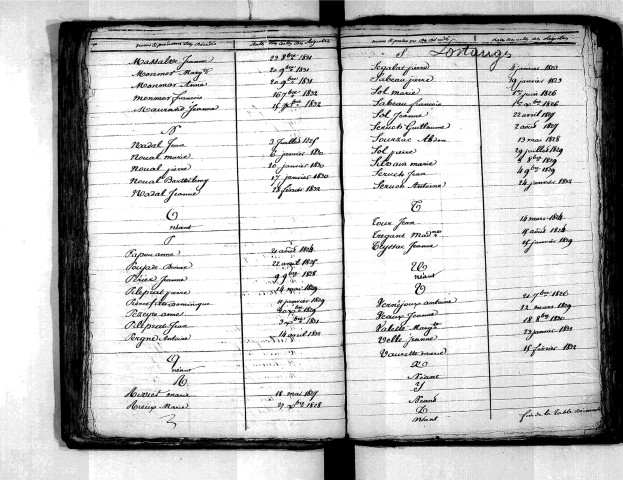 Noms et prénoms des décédés Date des actes des registres
Massabie Jeanne 23 8bre 1831
Monmot Marg.te 20 9bre 1831
Monmar Anne 20 9bre 1831
Monmar françois 16 7bre 1832
Maurand Jeanne 15 Xbre 1832
N
Nadal Jean 3 Juillet 1825
Noual marie 2 janvier 1830
Noual pierre 20 janvier 1830
Noual Barthélemy 17 janvier 1830
Nadal Jeanne 28 février 1832
O
néant
P
Papou anne 21 août 1824
22 avril 1825
Périer Jeanne 9 9bre 1828
Pileprat pierre 14 mai 1829
11 janvier 1829
anne 20 Xbre 1829
Pileprat Jean 3 Xbre 1831
Pergne Antoine 14 avril 1832
Q
néant
R
marie 18 mai 1827
Rieux Marie 27 Xbre 1828
S
Noms et prénoms des décédés Date des actes des registres
S Lostanges
Segalat pierre 4 janvier 1823
Sabeau pierre 19 janvier 1823
Sol marie 1er juin 1826
Sabeau françois 1er Xbre 1826
Sol Jeanne 22 avril 1827
Seruch Guillaume 2 août 1827
Sourzac 13 mai 1828
Sol pierre 29 juillet 1829
Silvain marie 4 8bre 1829
Seruch Jean 4 9bre 1829
Seruch Antoine 24 janvier 1832
T
Tour Jean 14 mars 1824
Tregant 15 août 1824
Teyssac Jeanne 25 janvier 1829
U
V
Vernéjoux antoine 21 7bre 1826
Veaux Jeanne 22 mars 1829
Valette Marg.te 18 8bre 1830
Velle jeanne 23 janvier 1832
Vaurette marie 15 février 1832
X
Néant
Y
Néant
Z
Néant fin de la table décennale